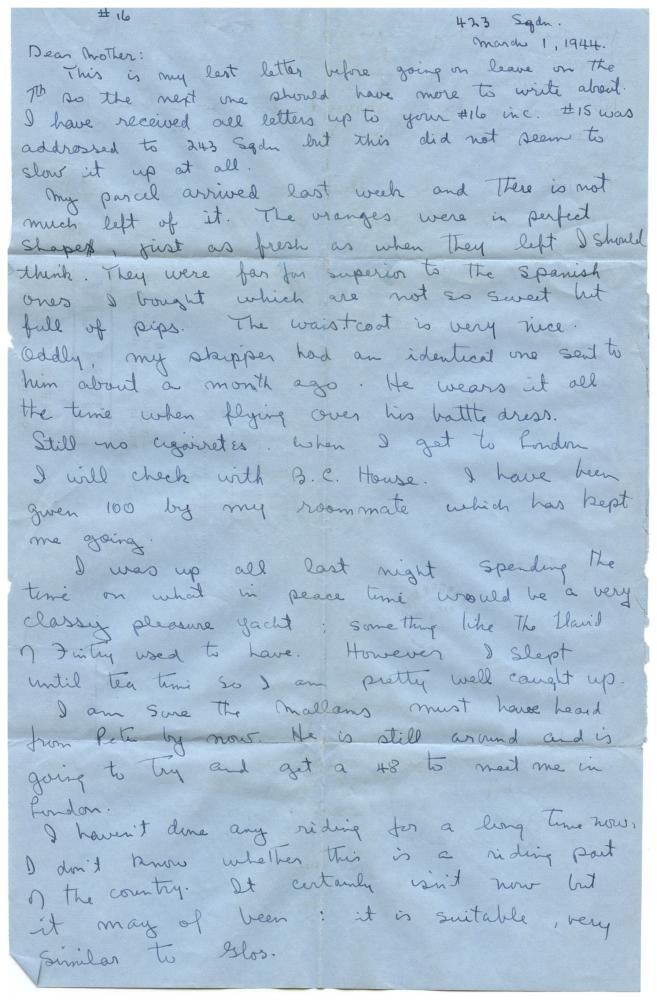 #16
423 Sqdn.
March 1, 1944.
Dear Mother:
This is my last letter before going on leave on the
7th so the next one should have more to write about.
I have received all letters up to your #16 inc. #15 was
addressed to 243 Sqdn but this did not seem to
slow it up at all.
My parcel arrived last week and there is not
much left of it. The oranges were in perfect
shape, just as fresh as when they left I should
think. They were far far superior to the Spanish
ones I bought which are not so sweet but
full of pips. The waistcoat is very nice.
Oddly, my skipper had an identical one sent to
him about a month ago. He wears it all
the time when flying over his battle dress.
Still no cigarretes. When I get to London
I will check with B.C. House. I have been
given 100 by my roommate which has kept
me going.
I was up all last night spending the
time on what in peace time would be a very
classy pleasure yacht; something like the
of Fintry used to have. However I slept
until tea time so I am pretty well caught up.
I am sure the Mallams must have heard
from Peter by now. He is still around and is
going to try and get a 48 to meet me in
London.
I haven't done any riding for a long time now.
I don't know whether this is a riding part
of the country. It certainly isn't now but
it may of been; it is suitable, very
similar to Glos.